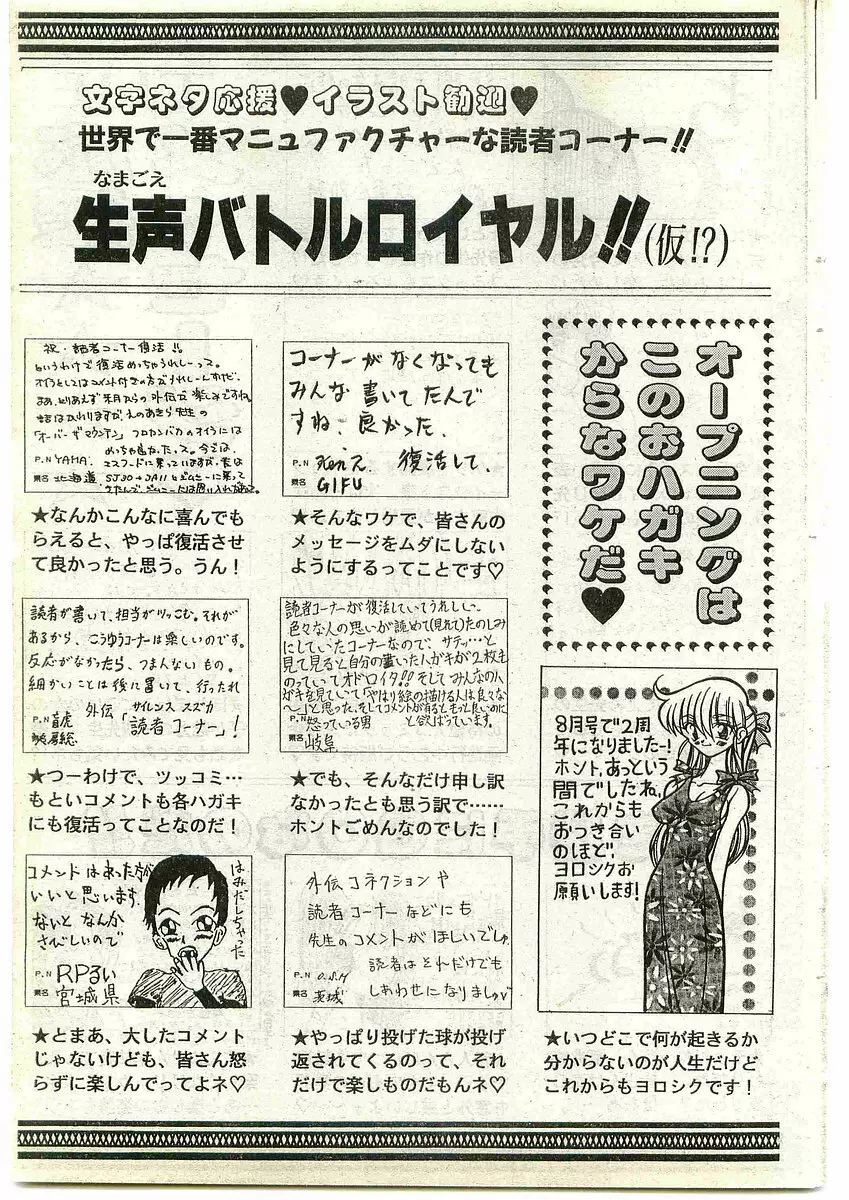 文字ネタ応援♥イラスト歓迎♥
世界で一番マニュファクチャーな読者コーナー!!
なまごえ
生声バトルロイヤル!!(仮!?)
オープニングは
このおハガキ
からなワケだ♥
コーナーがなくなっても
みんな書いてたんで
すね、良かった、
復活して、
P.N
県名 GIFU
★そんなワケで、皆さんの
メッセージをムダにしない
ようにするってことです♡
祝・読者コーナー復活!!
というわけで復活めっちゃうれしーっス。
オイラとしてはコメント付きの方がうれしーんすけど、
まあ、とりあえず来月からの外伝が楽しみですね
話はかわりますが、えのあきら先生の
「オーバー・ザ・マウンテン」
P.N YAMA.
県名 北海道
★なんかこんなに喜んでも
らえると、やっぱ復活させ
て良かったと思う。うん！
8月号で2周
年になりました〜!
ホント、あっという
間でしたね。
これからも
おつき合い
のほど、
ヨロシクお
願いします!
★いつどこで何が起きるか
分からないのが人生だけど
これからもヨロシクです！
読者コーナーが復活していてうれしい〜。
色々な人の思いが読めて(見れて)たのしみ
にしていたコーナーなので、サテッ…と
見て見ると自分の書いたハガキが2枚も
のっていてオドロイタ!!そしてみんなの人
ハガキを見ていて「やはり絵の描ける人は良いな
〜」と思った、そしてコメントが有るともっと良いのに
と欲ばっています。
P.N 怒っている男
県名 岐阜
★でも、そんなだけ申し訳
なかったとも思う訳で……
ホントごめんなのでした！
読者が書いて、担当がツッこむ。それが
あるから、こうゆうコーナーは楽しいのです。
反応がなかったら、つまんないもの。
細かいことは後に置いて、行ったれ
外伝「読者コーナー」!
サイレンス スズカ
P.N 盲虎
県名
★つーわけで、ツッコミ…
もといコメントも各ハガキ
にも復活ってことなのだ！
外伝コネクションや
読者コーナーなどにも
先生のコメントがほしいでしゅ
読者はそれだけでも
しあわせになりましゅ♡
P.N O.S.M
県名 茨城
★やっぱり投げた球が投げ
返されてくるのって、それ
だけで楽しものだもんネ♡
コメントはあった方が
いいと思います。
ないとなんか
さびしいので
はみだしちゃった
P.N RPるい
県名 宮城県
★とまあ、大したコメント
じゃないけども、皆さん怒
らずに楽しんでってよネ♡